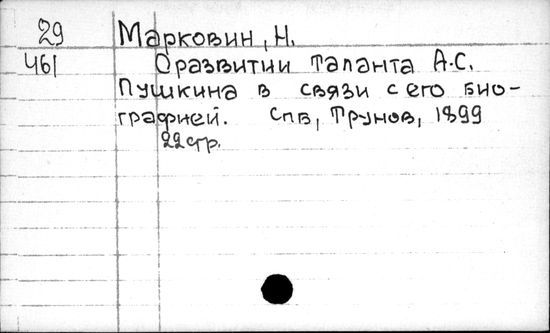 29 Марковин, Н.
461 О развитии таланта А.С.
Пушкина в связи с его био-
графией. Спб, Трунов, 1899
22 стр.